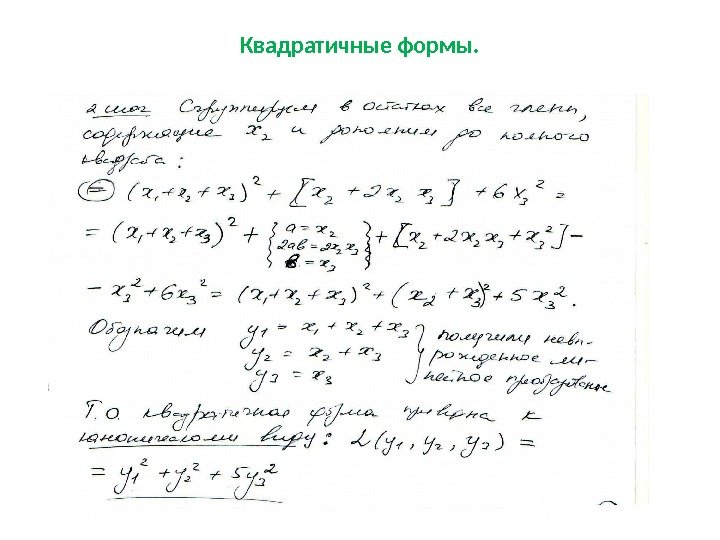 Квадратичные формы.
2 шаг Сгруппируем в остатках все члены,
содержащие x₂ и дополним до полного
квадрата:
(=) (x₁+x₂+x₃)² + [x₂ + 2x₂ x₃] + 6x₃² =
= (x₁+x₂+x₃)² + { a = x₂ 2ab = 2x₂x₃ b = x₃ } + [x₂ + 2x₂x₃ + x₃²] −
− x₃² + 6x₃² = (x₁+x₂+x₃)² + (x₂ + x₃)² + 5x₃².
Обозначим y₁ = x₁ + x₂ + x₃ } получили невы-
y₂ = x₂ + x₃ рожденное ли-
y₃ = x₃ нейное преобразование
Т.о. квадратичная форма приведена к
каноническому виду: L(y₁, y₂, y₃) =
= y₁² + y₂² + 5y₃²